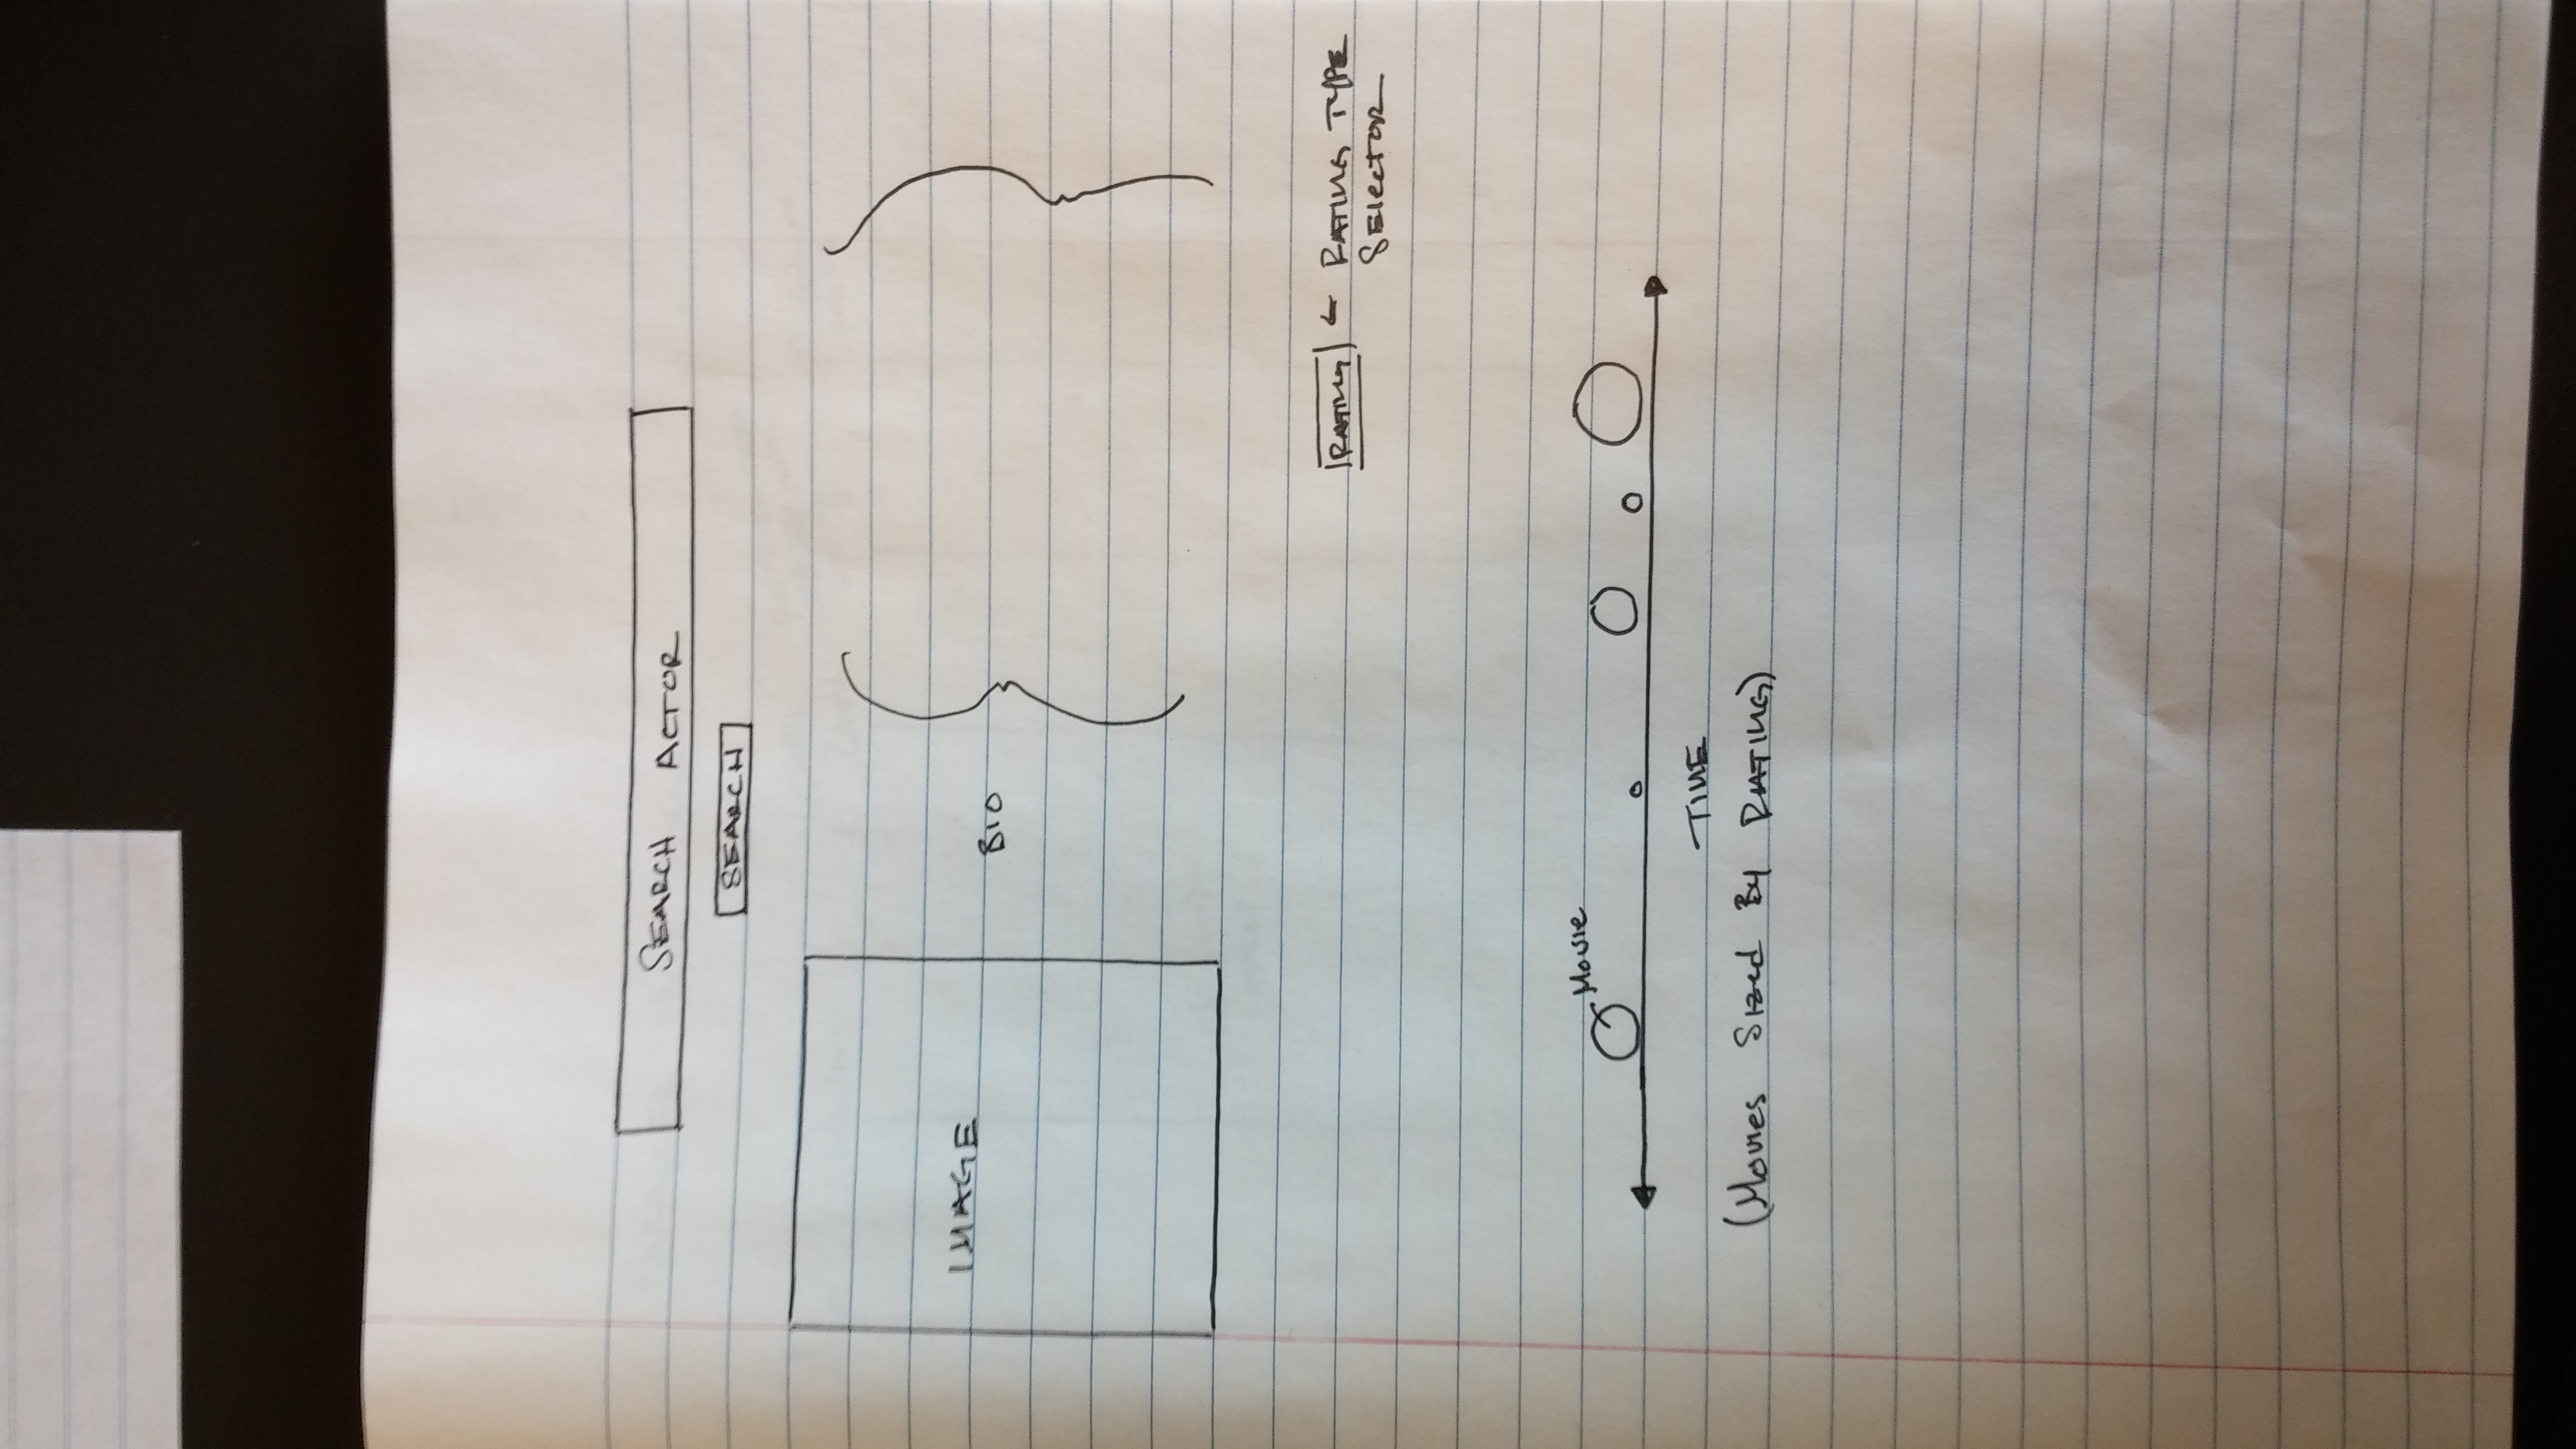 SEARCH ACTOR
SEARCH
IMAGE
BIO
RATING ← RATING TYPE
SELECTOR
Movie
TIME
(Movies Sized By RATING)